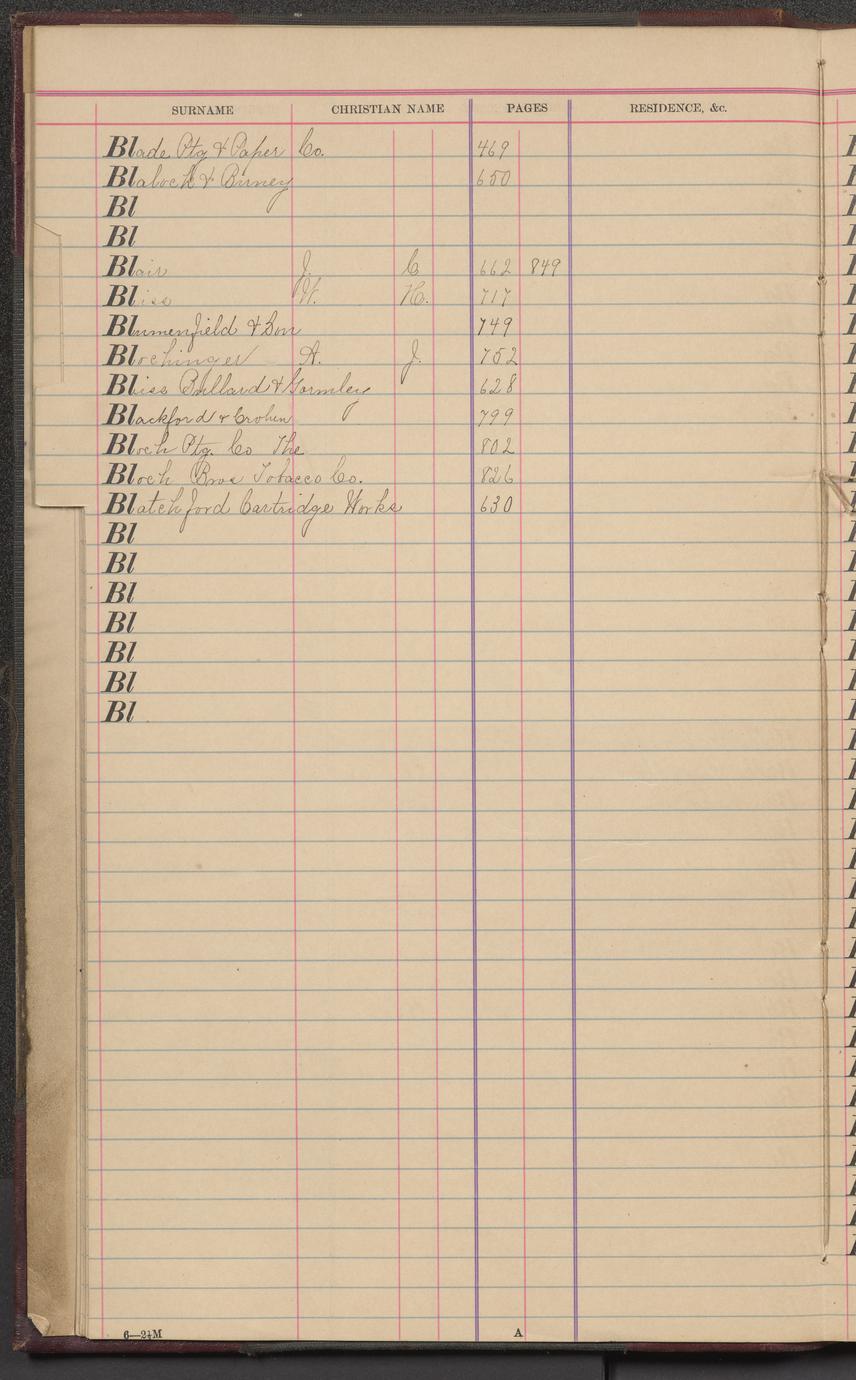 SURNAME CHRISTIAN NAME PAGES RESIDENCE, &c.
Blade Ptg & Paper Co. 469
Blalock & Birney 650
Bl
Bl
Blair J. C 662 849
Bliss W. H. 717
Blumenfield & Son 749
Blochinger A. J. 752
Bliss Bullard & Gormley 628
Blackford & Crohin 799
Bloch Ptg. Co The 802
Bloch Bros Tobacco Co. 826
Blatchford Cartridge Works 630
Bl
Bl
Bl
Bl
Bl
Bl
Bl
6—2½M A